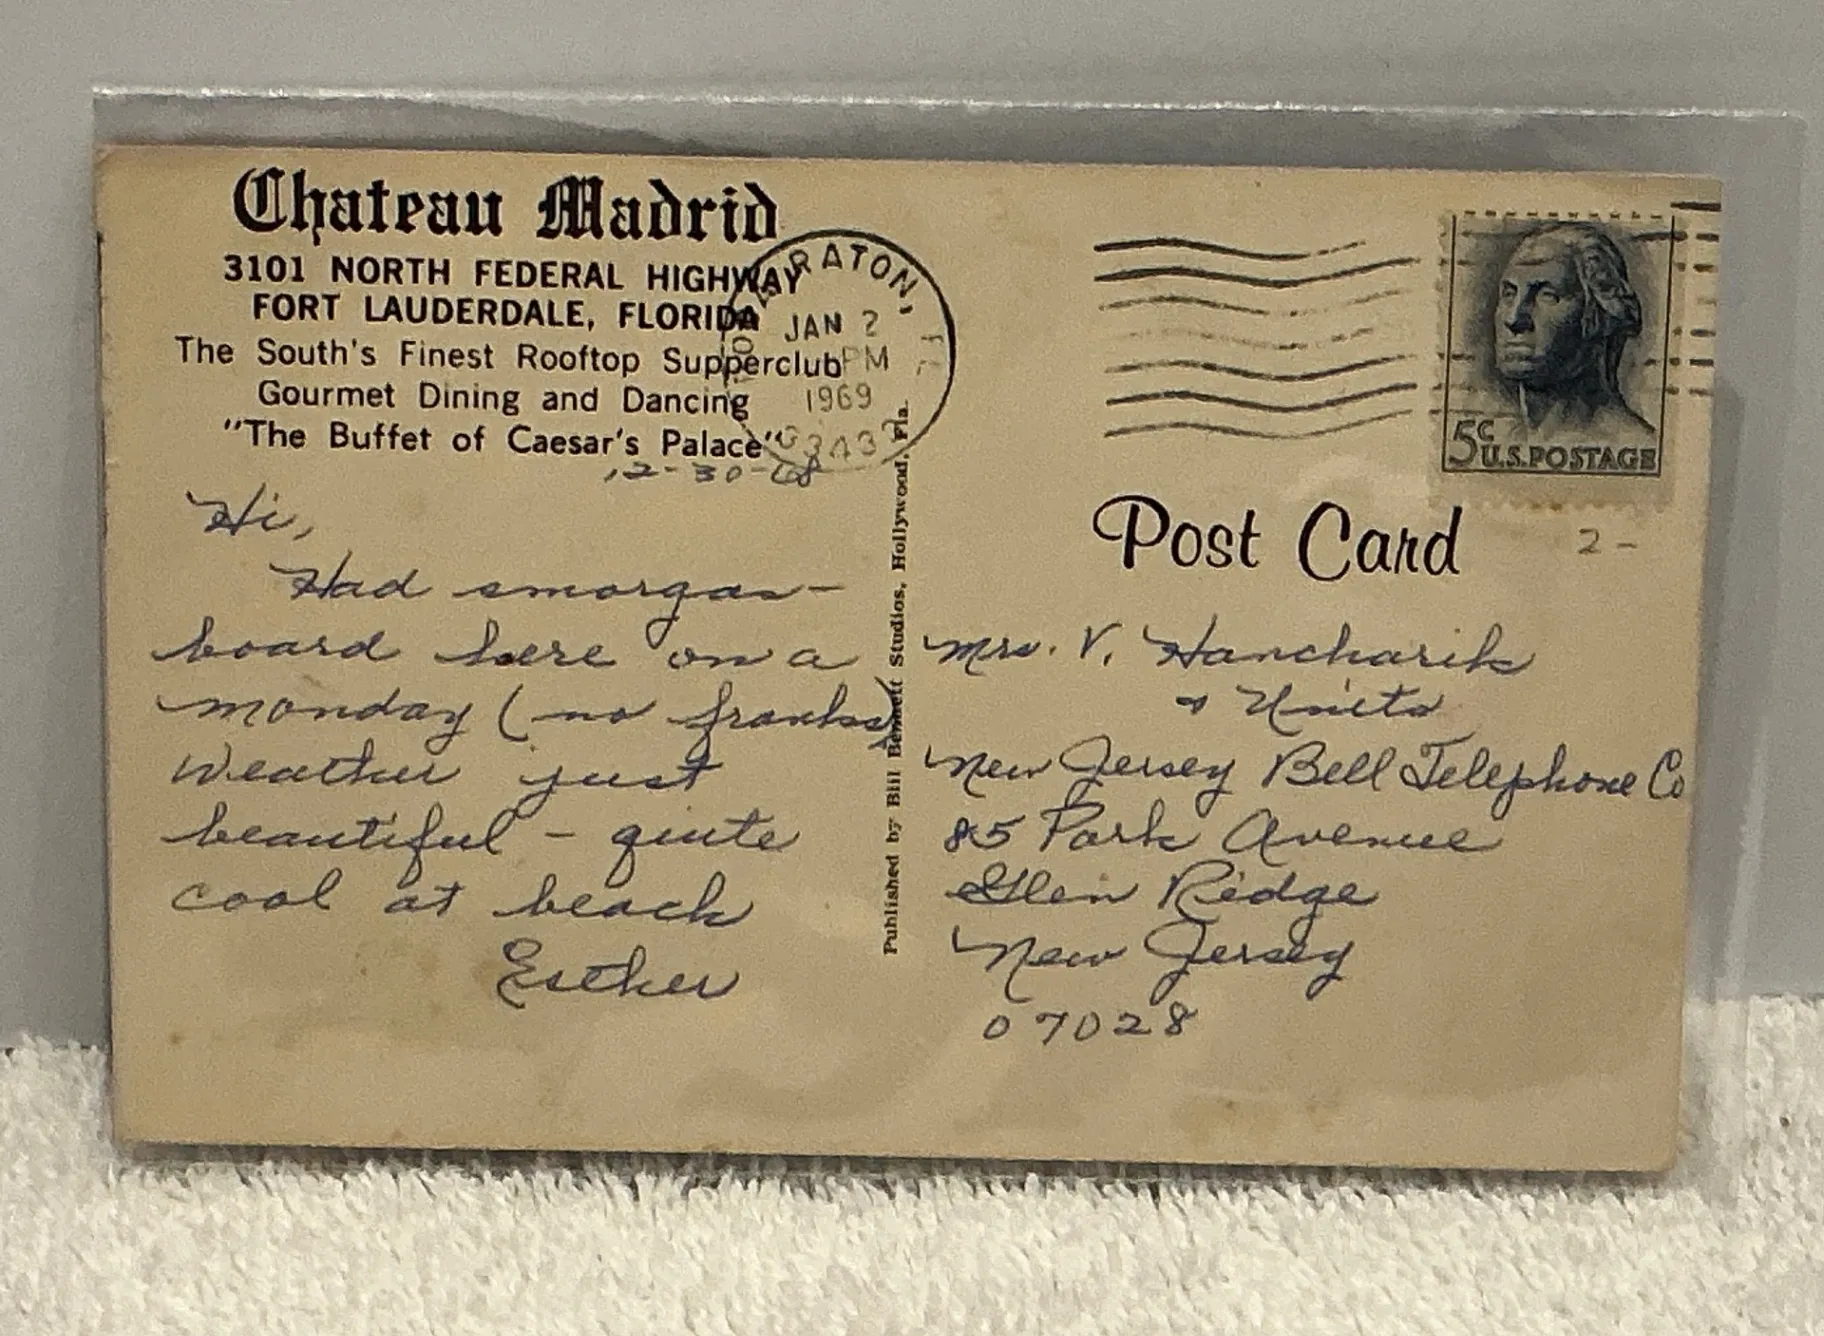 Chateau Madrid
3101 NORTH FEDERAL HIGHWAY
FORT LAUDERDALE, FLORIDA
The South's Finest Rooftop Supperclub
Gourmet Dining and Dancing
"The Buffet of Caesar's Palace"
12-30-68
Hi,
Had smorgas-
board here on a
monday (no franks)
Weather just
beautiful - quite
cool at beach
Esther
Published by Bill Bennett Studios, Hollywood, Fla.
RATON, FL
JAN 2
PM
1969
5c
U.S. POSTAGE
Post Card
2-
Mrs. V. Hancharik
+ Units
New Jersey Bell Telephone Co
85 Park Avenue
Glen Ridge
New Jersey
07028